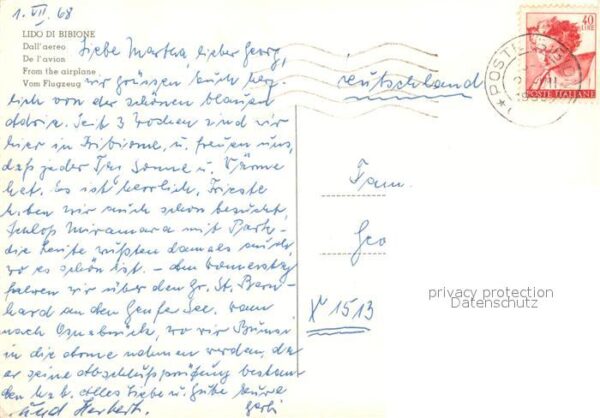 1. VII. 68
LIDO DI BIBIONE
Dall'aereo
De l'avion
From the airplane
Vom Flugzeug
Liebe Martha, lieber Georg,
wir grüssen Euch herz-
lich von der schönen blauen
Adria. Seit 3 Wochen sind wir
hier in Bibione, u. freuen uns,
daß jeder Tag Sonne u. Wärme
hat. Es ist herrlich, Trieste
haben wir auch schon besucht,
Schloß Miramara mit Park,
die Leute wußten damals auch,
wo es schön ist. - Am Donnerstag
fahren wir über den Gr. St. Bern-
hard an den Genfer See, dann
nach Osnabrück, wo wir
in die Arme nehmen werden, da
er seine Abschlußprüfung bestan-
den hat. Alles Liebe u. Gute Eure
und Herbert.
Deutschland
40
LIRE
POSTE ITALIANE
Fam.
Geo
X 1513
privacy protection
Datenschutz